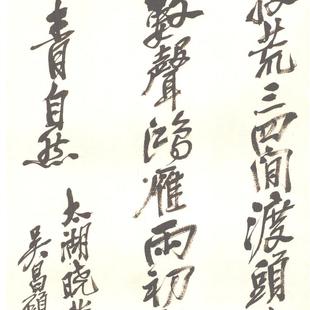 荒三四間渡頭
數聲鴻雁雨初
青自然
太湖晓
吴昌碩